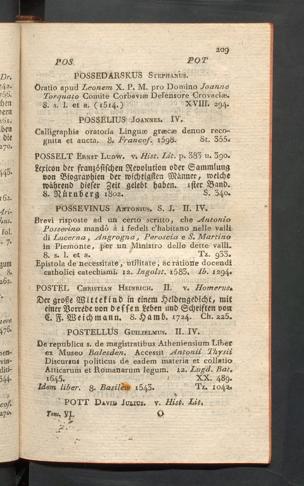 209
POS POT
POSSEDARSKUS STEPHANUS.
Oratio apud Leonem X. P. M. pro Domino Joanne
Torquato Comite Corbaviæ Defensore Crovaciæ.
8. s. l. et a. (1514.) XVIII. 294.
POSSELIUS JOANNES. IV.
Calligraphia oratoria Linguæ græcæ denuo reco-
gnita et aucta. 8. Francof. 1598. St. 355.
POSSELT ERNST LUDW. v. Hist. Lit. p. 383 u. 390.
Lexicon der französischen Revolution oder Sammlung
von Biographien der wichtigsten Männer, welche
während dieser Zeit gelebt haben. 1ster Band.
8. Nürnberg 1802. S. 340.
POSSEVINUS ANTONIUS. S. J. II. IV.
Brevi risposte ad un certo scritto, che Antonio
Possevino mandò à i fedeli c'habitano nelle valli
di Lucerna, Angrogna, Peroscia e S. Martino
in Piemonte, per un Ministro delle dette valli.
8. s. l. et a. Tz. 933.
Epistola de necessitate, utilitate, ac ratione docendi
catholici catechismi. 12. Ingolst. 1583. Ib. 1294.
POSTEL CHRISTIAN HEINRICH. II. v. Homerus.
Der große Wittekind in einem Heldengedicht, mit
einer Vorrede von dessen Leben und Schriften von
C. F. Weichmann. 8. Hamb. 1724. Ch. 225.
POSTELLUS GUILIELMUS. II. IV.
De republica s. de magistratibus Atheniensium Liber
ex Museo Balesdem. Accessit Antonii Thysii
Discursus politicus de eadem materia et collatio
Atticarum et Romanarum legum. 12. Lugd. Bat.
1645. XX. 489.
Idem liber. 8. Basileæ 1543. Tz. 1042.
POTT DAVID JULIUS. v. Hist. Lit.
Tom. VI. O